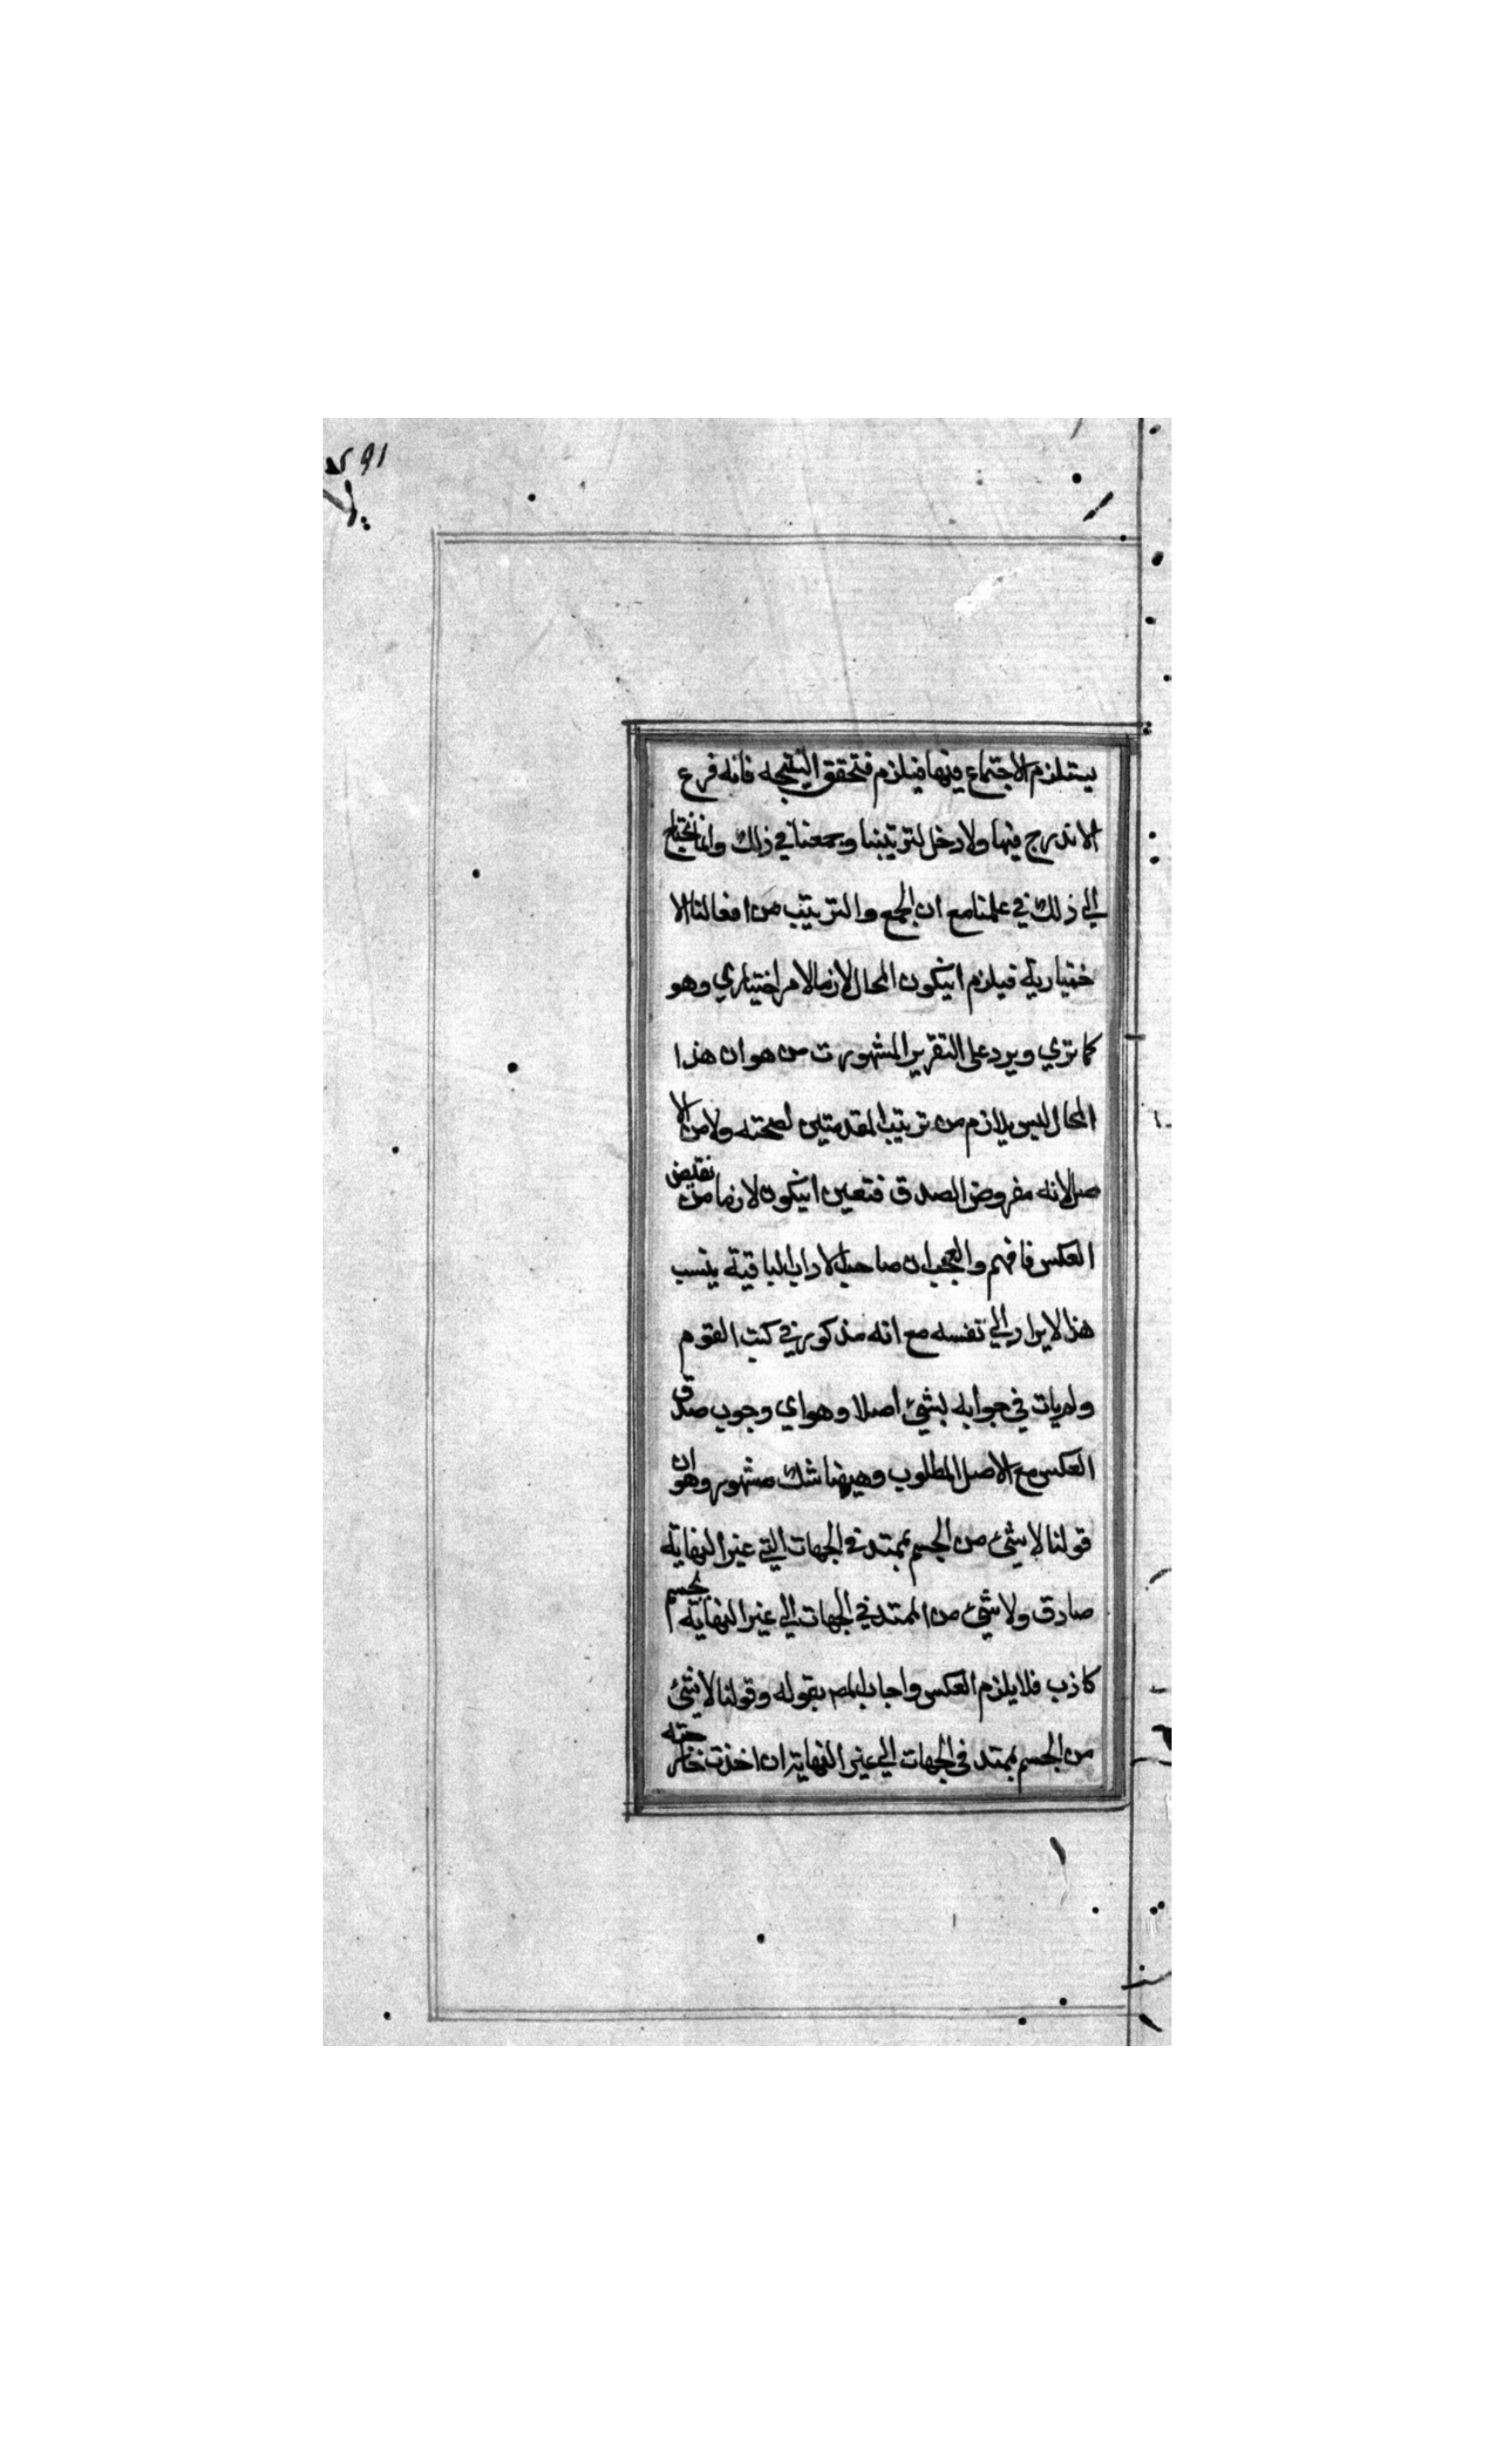 يستلزم الاجتماع فيها فيلزم فتحقق النتيجه فانه فرع
الاندرج فيها ولا دخل لترتيبنا وجمعنا في ذلك وانما نحتاج
الي ذلك في علمنا مع ان الجمع والترتيب من افعالنا الا
ختيارية فيلزم انيكون المحال لازما لامر اختياري وهو
كما تري ويرد على التقرير المشهور ت من هو ان هذا
المحال ليس بلازم من ترتيب المقدمتين لصحته ولا من الا
صل لانه مفروض الصدق فتعين انيكون لازما من نقيض
العكس فافهم والعجب ان صاحب الاداب الباقية ينسب
هذا الايراد الي نفسه مع انه مذكور في كتب القوم
ولم يات في جوابه بشيئ اصلا وهو اي وجوب صدق
العكس مع الاصل المطلوب وههنا شك مشهور وهو ان
قولنا لا شيئ من الجسم بممتد في الجهات التي غير النهاية
صادق ولا شيئ من الممتد في الجهات الي غير النهاية بجسم
كاذب فلا يلزم العكس واجاب المص بقوله وقولنا لا شيئ
من الجسم بممتد في الجهات الي غير النهاية ان اخذت خارجته